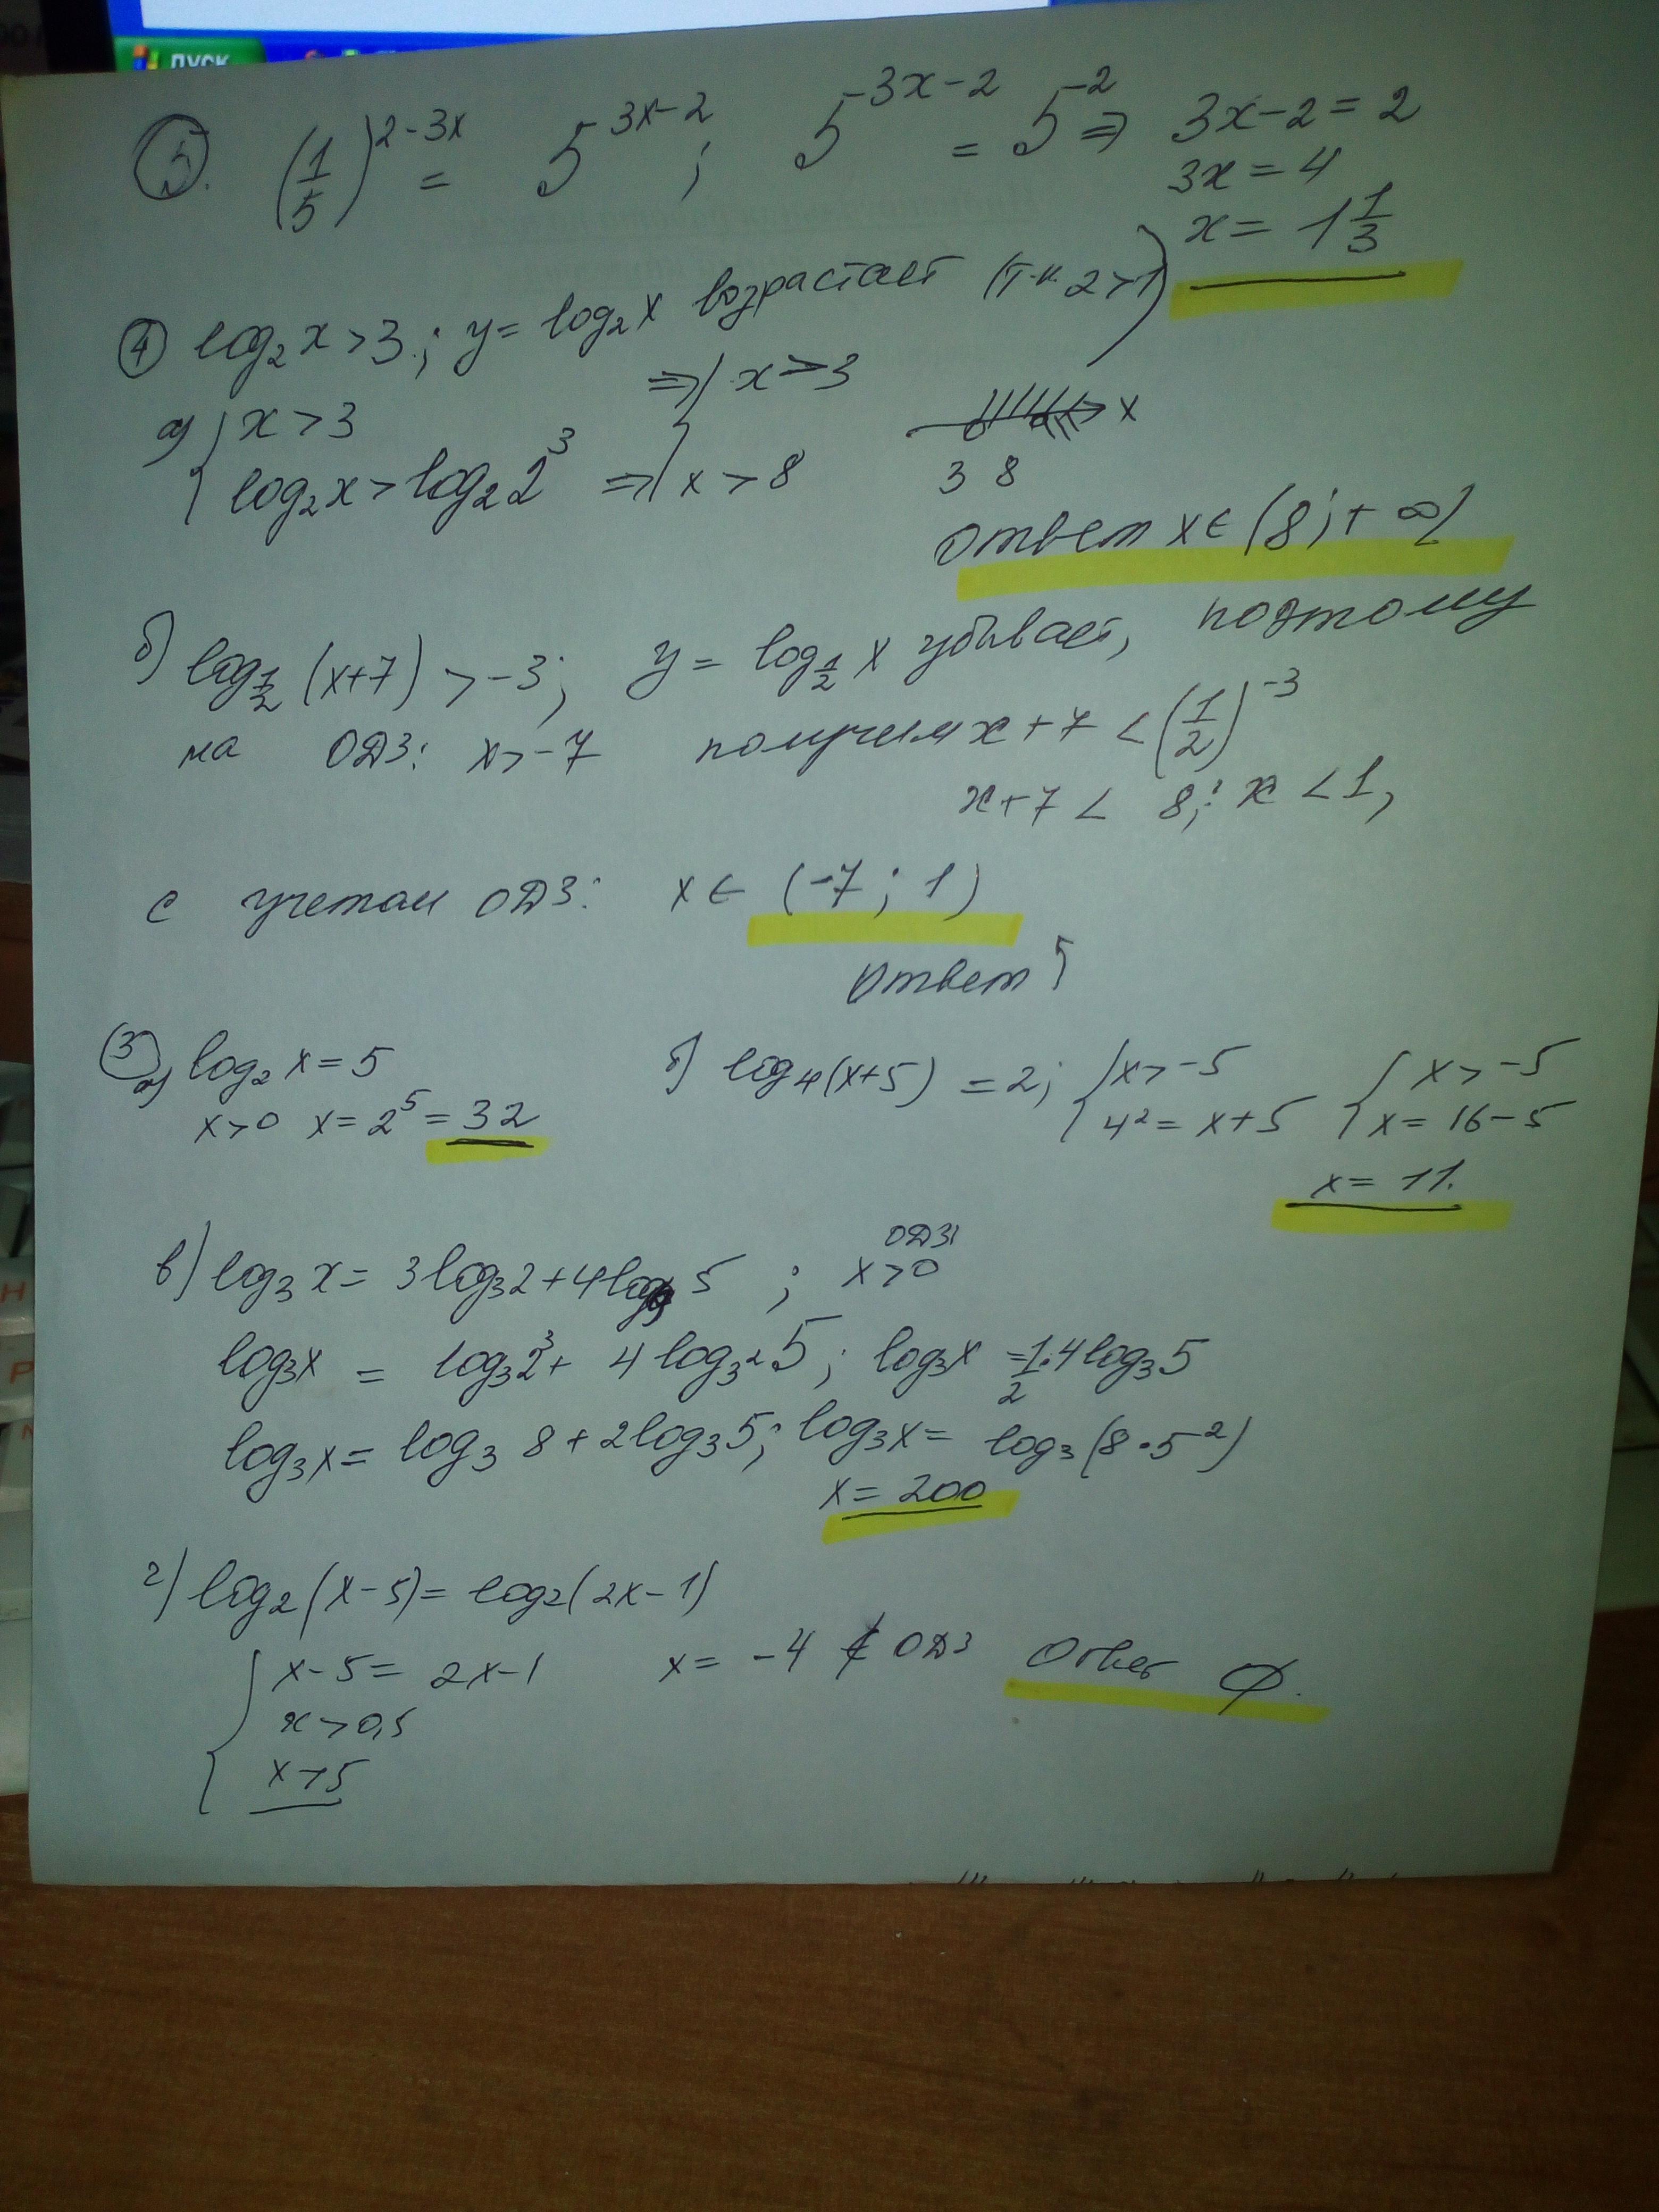 ПУСК
5. (1/5)^(2-3x) = 5^(3x-2); 5^(-3x-2) = 5^(-2) ⇒ 3x-2=2
3x=4
x= 1 1/3
4 log₂x>3; y= log₂x возрастает (т.к. 2>1)
а) { x>3 ⇒ { x>3
log₂x>log₂2³ ⇒ x>8
x
3 8
ответ x∈(8;+∞)
б) log_(1/2) (x+7) >-3; y= log_(1/2) x убывает, поэтому
на ОДЗ: x>-7 получим x+7 <(1/2)^(-3)
x+7 < 8; x <1,
с учетом ОДЗ: x∈ (-7; 1)
ответ
3 а) log₂ x=5
x>0 x=2⁵=32
б) log₄(x+5) =2; { x>-5 { x>-5
4²=x+5 x=16-5
x= 11.
в) log₃x= 3log₃2+4log₉5 ; ОДЗ: x>0
log₃x = log₃2³+ 4log_(3²)5; log₃x =1/2·4log₃5
log₃x= log₃8+2log₃5; log₃x= log₃(8·5²)
x=200
г) log₂(x-5)=log₂(2x-1)
{ x-5= 2x-1 x= -4 ∉ ОДЗ Ответ ∅.
x>0,5
x>5